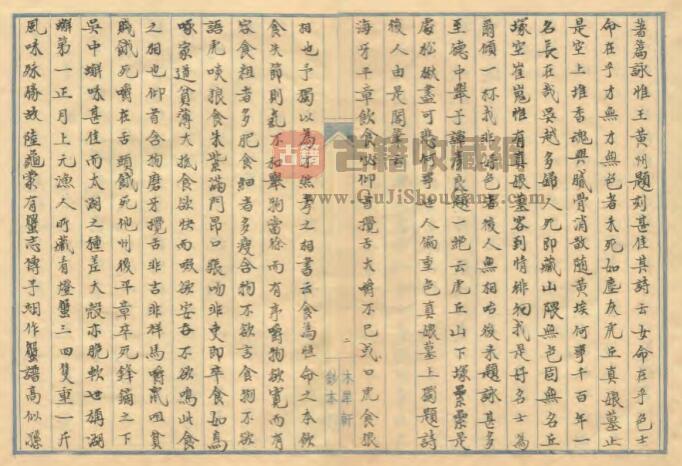 著篇詠惟王黄州題刻甚佳其詩云女命在乎色士
命在乎才無才無色者未死如塵灰虎丘真娘墓止
是空土堆香魂與膩骨消散随黄埃何事千百年一
名長在哉吳越多婦人死即藏山隈無色固無名丘
塚空崔嵬惟有真娘墓客到情徘徊我是好名士為
爾傾一杯我非好色者後人無相咍後来題詠甚多
至德中舉子譚銖題一絶云虎丘山下塚纍纍是
處松楸盡可悲何事世人偏重色真娘墓上獨題詩
後人由是閣筆云
海牙平章飲食必仰首攪舌大嚼不已或曰虎食狼
二
木犀軒
鈔本
相也予獨以為不然考之相書云食為性命之本飲
食失節則氣不和舉物當徐而有序嚼物欲寬而有
容食粗者多肥食細者多瘦含物不欲言食物不欲
語虎啖狼食朱紫滿門昂口張吻非吏即卒食如鳥
啄家道貧薄大抵食欲快而啜欲安吞不欲鳴此食
之相也仰首含物磨牙攪舌非吉非祥馬嚼鼠咀貧
賤餓死嚼在舌頭餓死他州後平章卒死鋒鏑之下
吳中蠏味甚佳而太湖之種差大殻亦脆軟世稱湖
蠏第一正月上元漁人所藏看燈蟹三四隻重一斤
風味殊勝故陸龜蒙有蟹志傅子翊作蟹譜高似孫
古籍收藏网
www.QuJiShouCang.com